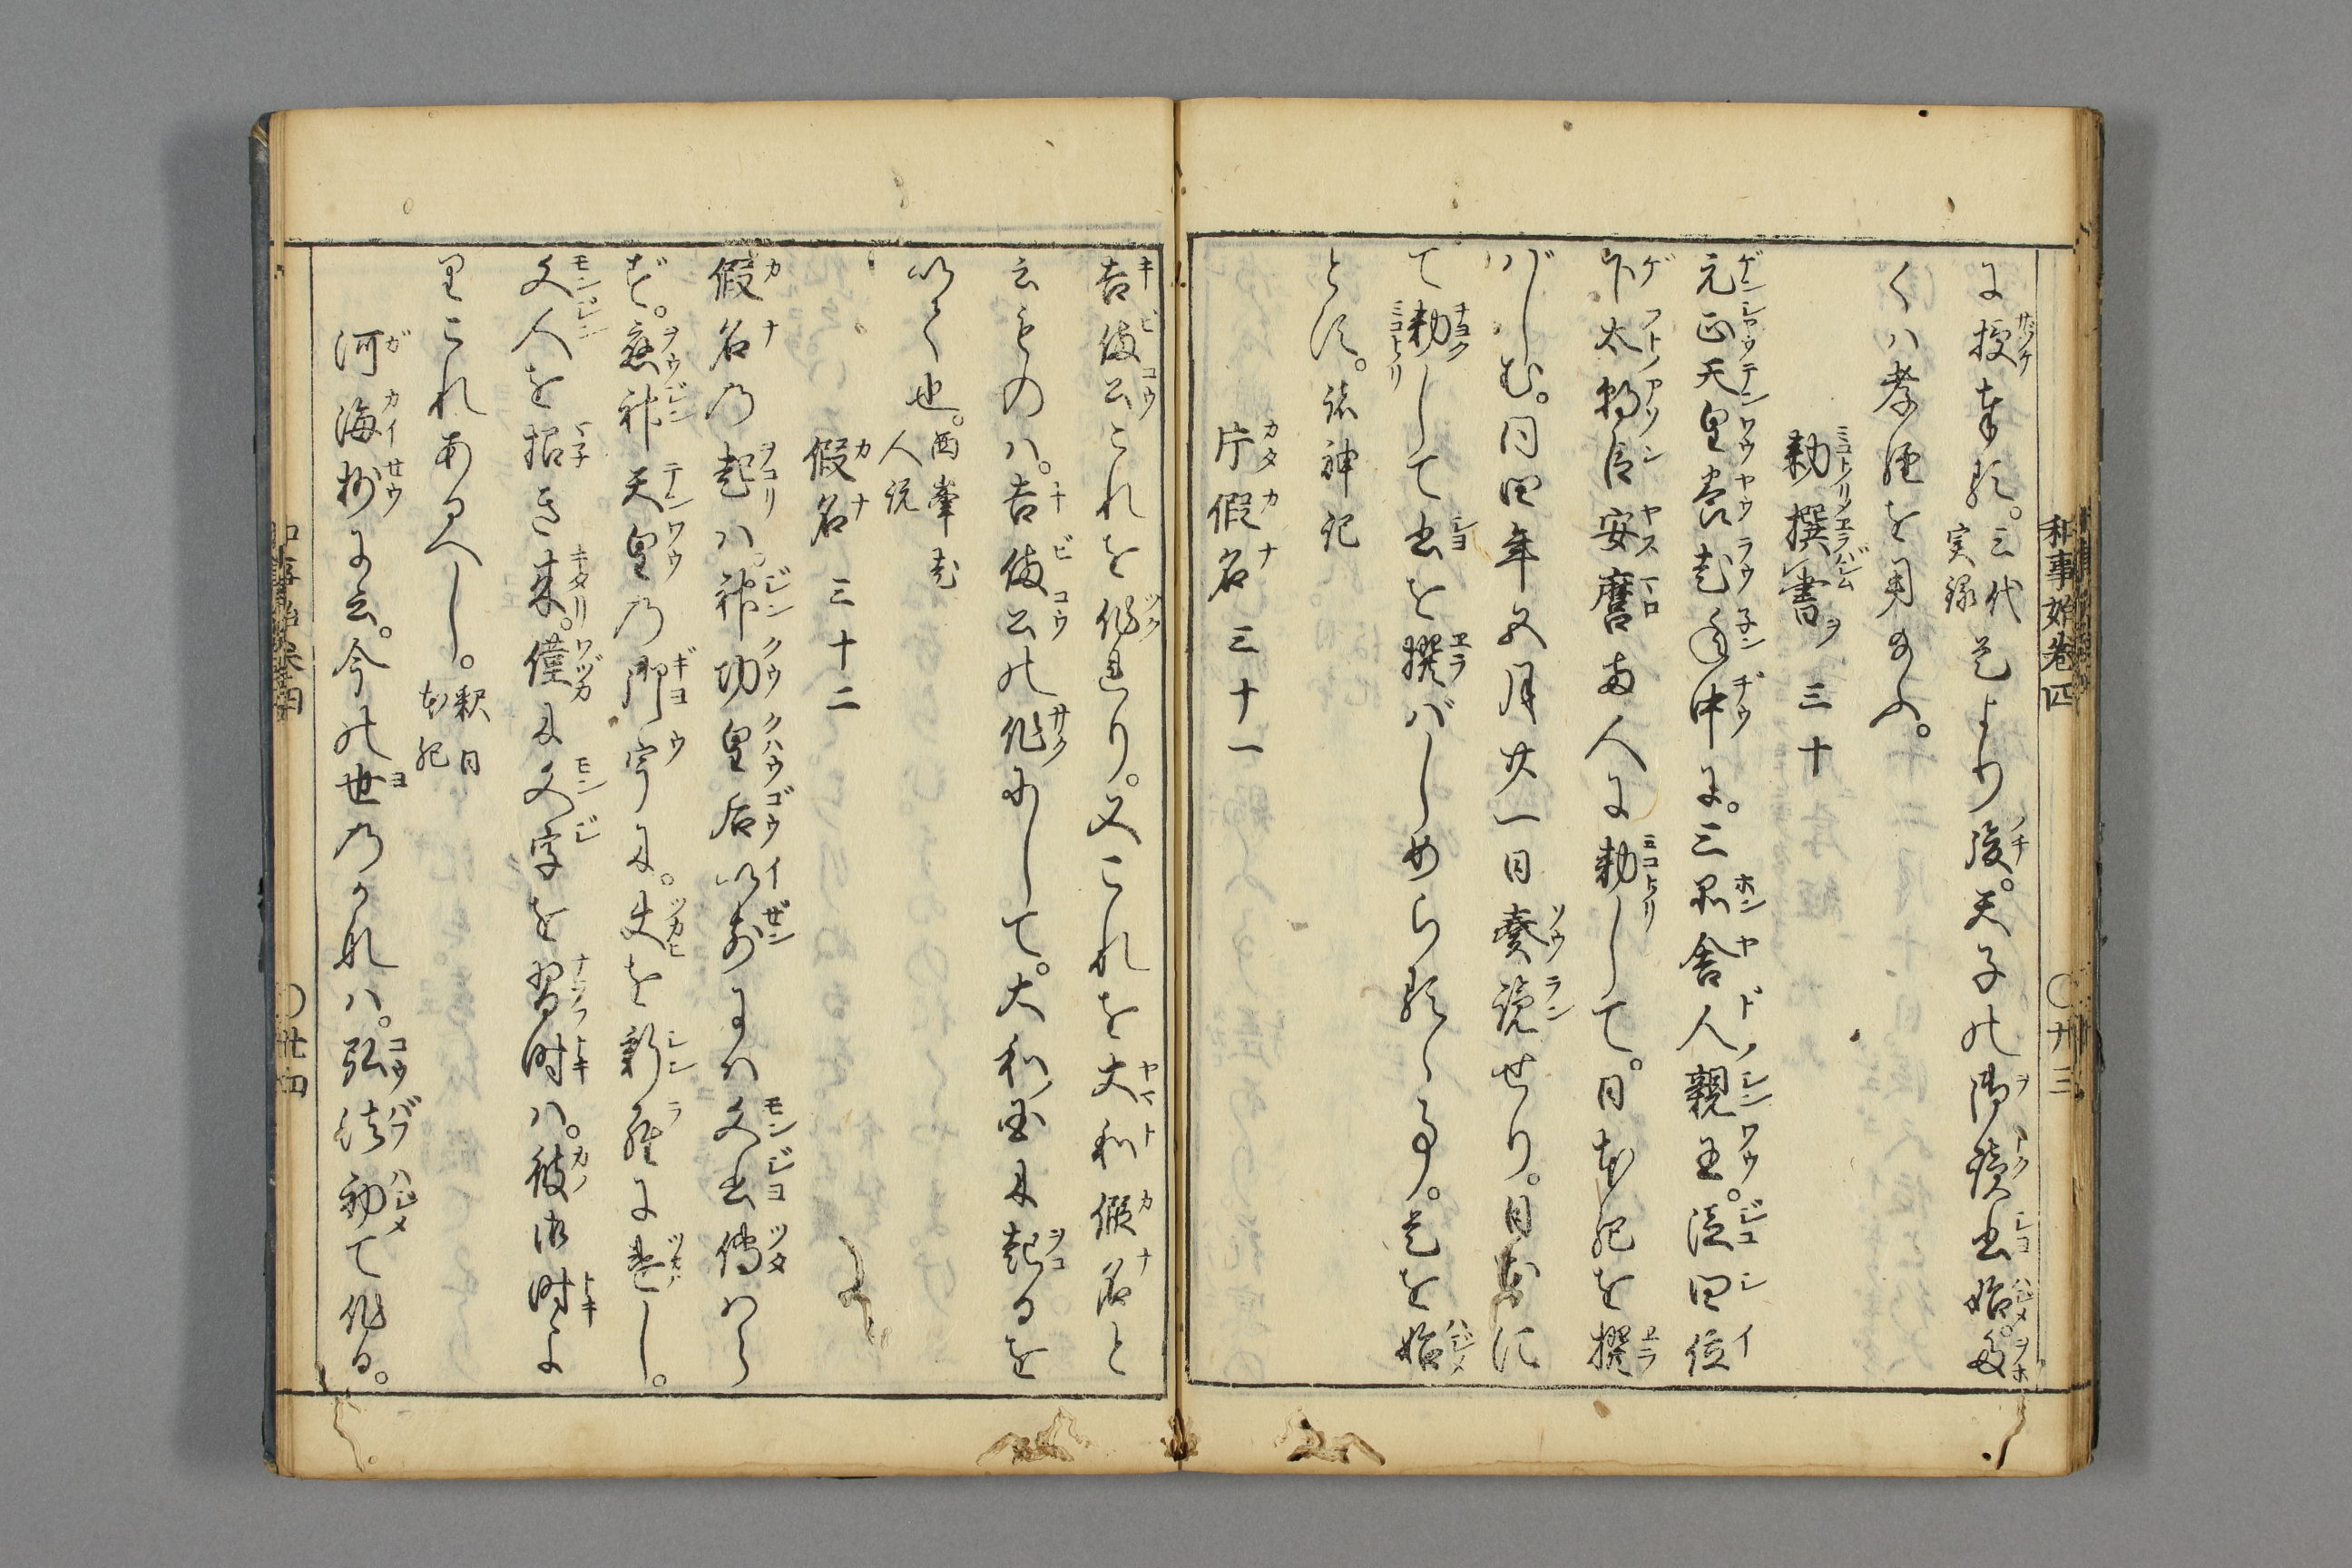 和事始巻四　〇卅三
に授奉る。三代実録是より後。天子の御讀書始。多
くハ孝經を用給ふ。
勅撰書　三十
元正天皇養老年中に。三品舎人親王。従四位
下太朝臣安麿両人に勅して。日本紀を撰
ばしむ。同四年五月廿一日奏覧せり。日本に
て勅して書を撰ばしめらるゝ事。是を始
とす。諸神記
片假名　三十一
吉備公これを作れり。又これを大和假名と
云ものハ。吉備公の作にして。大和国に起るを
以て也。両峯老人説
假名　三十二
假名の起ハ。神功皇后以前にハ文書傳ハら
ず。應神天皇の御宇に。使を新羅に遣し。
文人を招き来。僅に文字を習時ハ。彼御時よ
りこれあるへし。釈日本紀
河海抄に云。今の世のかなハ。弘法初て作る。
和事始巻四　〇卅四